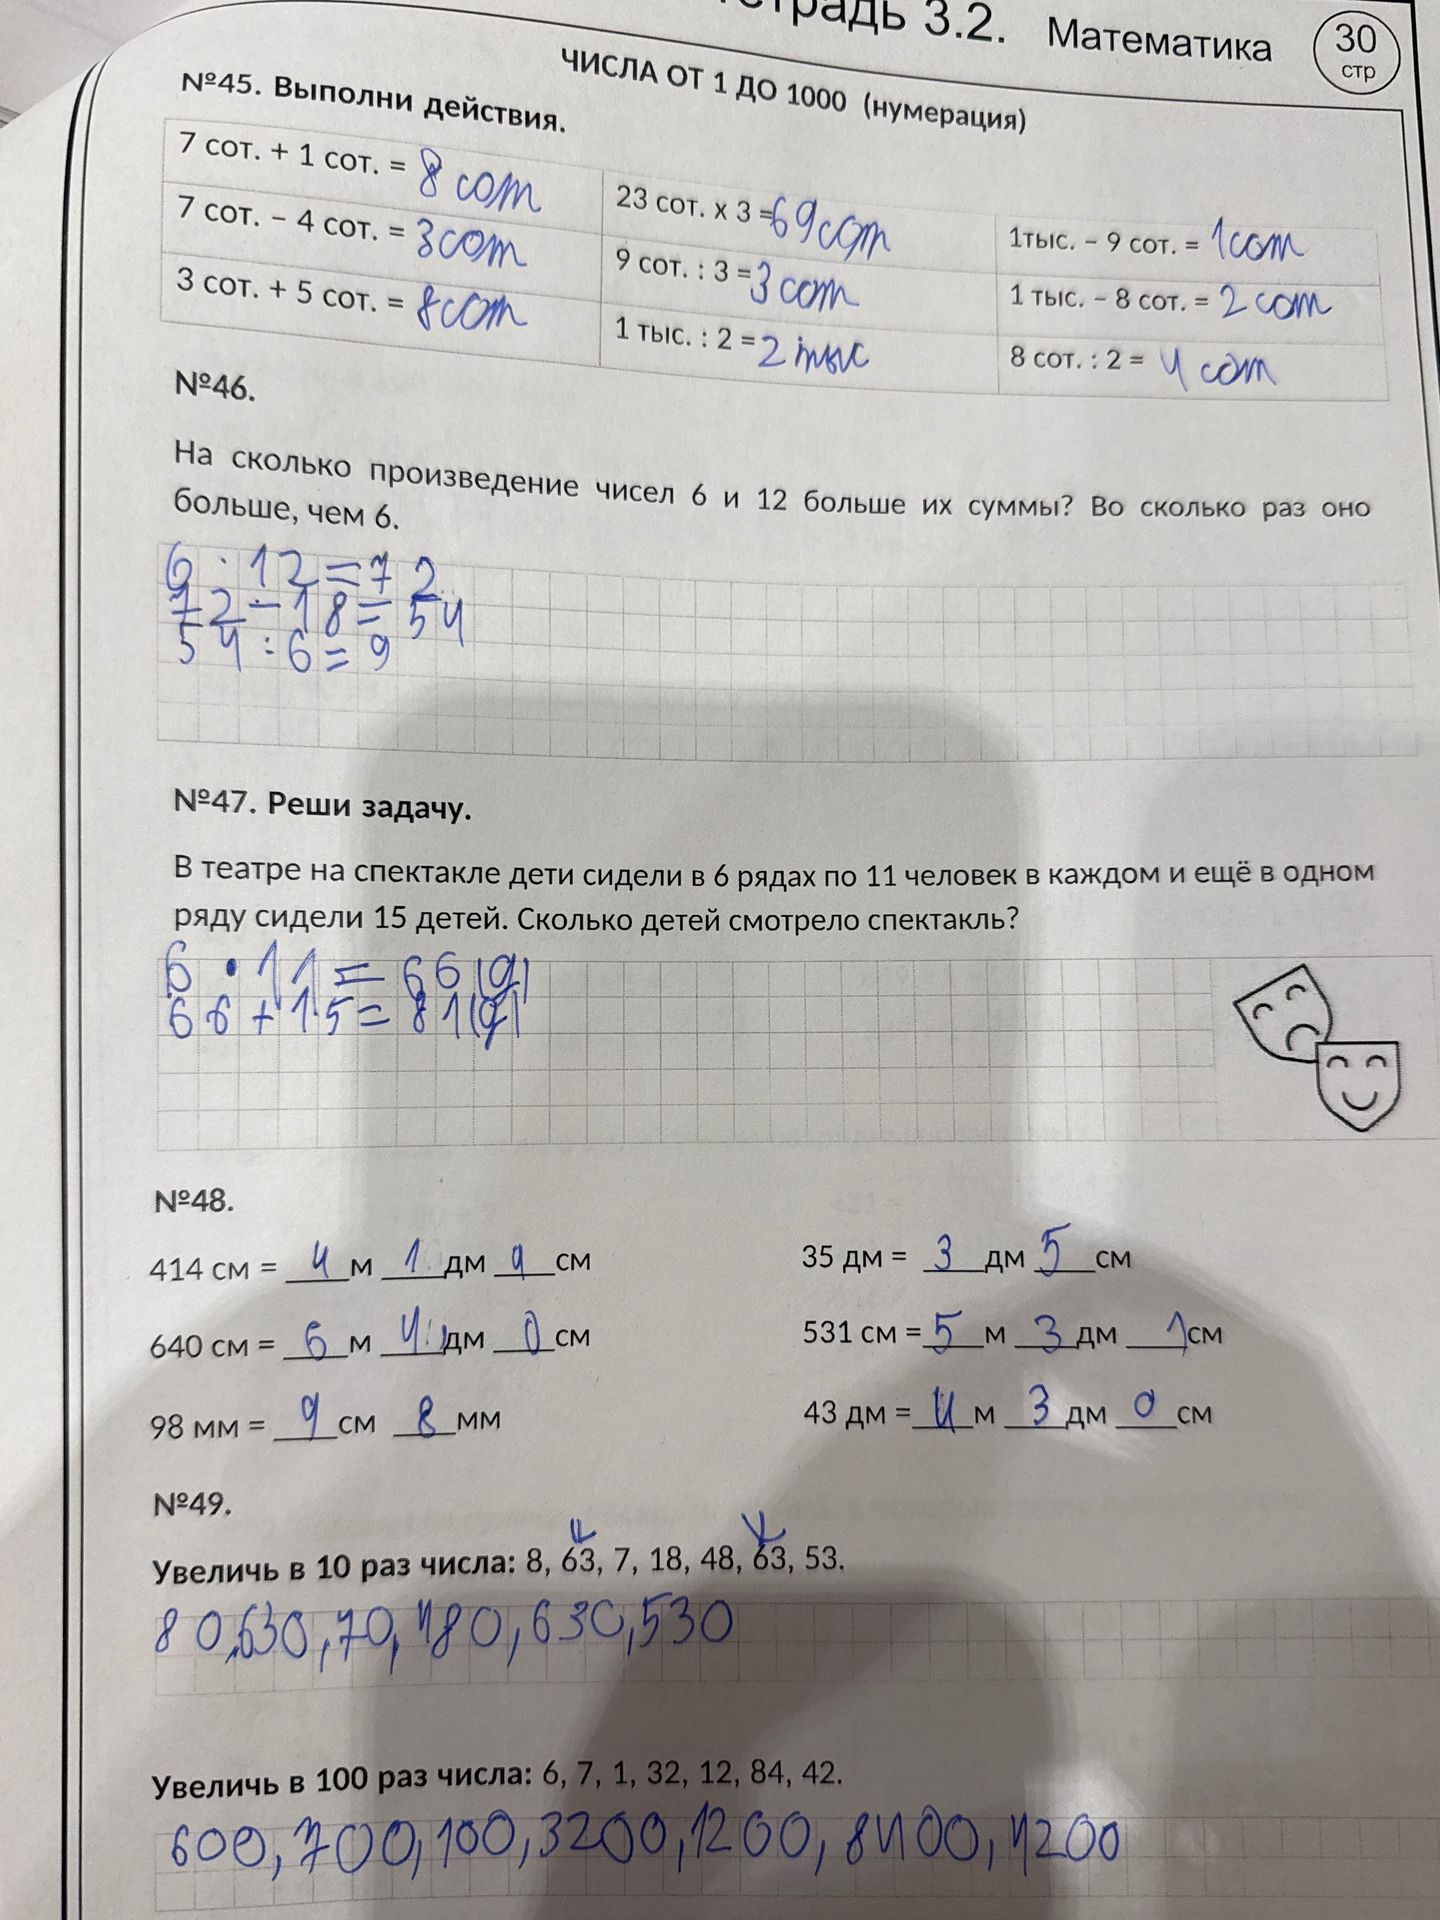 тетрадь 3.2. Математика
30
стр
ЧИСЛА ОТ 1 ДО 1000 (нумерация)
№45. Выполни действия.
7 сот. + 1 сот. = 8 сот
23 сот. х 3 = 69 сот
1тыс. – 9 сот. = 1 сот
7 сот. – 4 сот. = 3 сот
9 сот. : 3 = 3 сот
1 тыс. – 8 сот. = 2 сот
3 сот. + 5 сот. = 8 сот
1 тыс. : 2 = 2 тыс
8 сот. : 2 = 4 сот
№46.
На сколько произведение чисел 6 и 12 больше их суммы? Во сколько раз оно
больше, чем 6.
6 · 12 = 72
72 – 18 = 54
54 : 6 = 9
№47. Реши задачу.
В театре на спектакле дети сидели в 6 рядах по 11 человек в каждом и ещё в одном
ряду сидели 15 детей. Сколько детей смотрело спектакль?
6 · 11 = 66 (д)
66 + 15 = 81 (д)
№48.
414 см = 4 м 1 дм 4 см
35 дм = 3 дм 5 см
640 см = 6 м 4 дм 0 см
531 см = 5 м 3 дм 1 см
98 мм = 9 см 8 мм
43 дм = 4 м 3 дм 0 см
№49.
Увеличь в 10 раз числа: 8, 63, 7, 18, 48, 63, 53.
80, 630, 70, 480, 630, 530
Увеличь в 100 раз числа: 6, 7, 1, 32, 12, 84, 42.
600, 700, 100, 3200, 1200, 8400, 4200